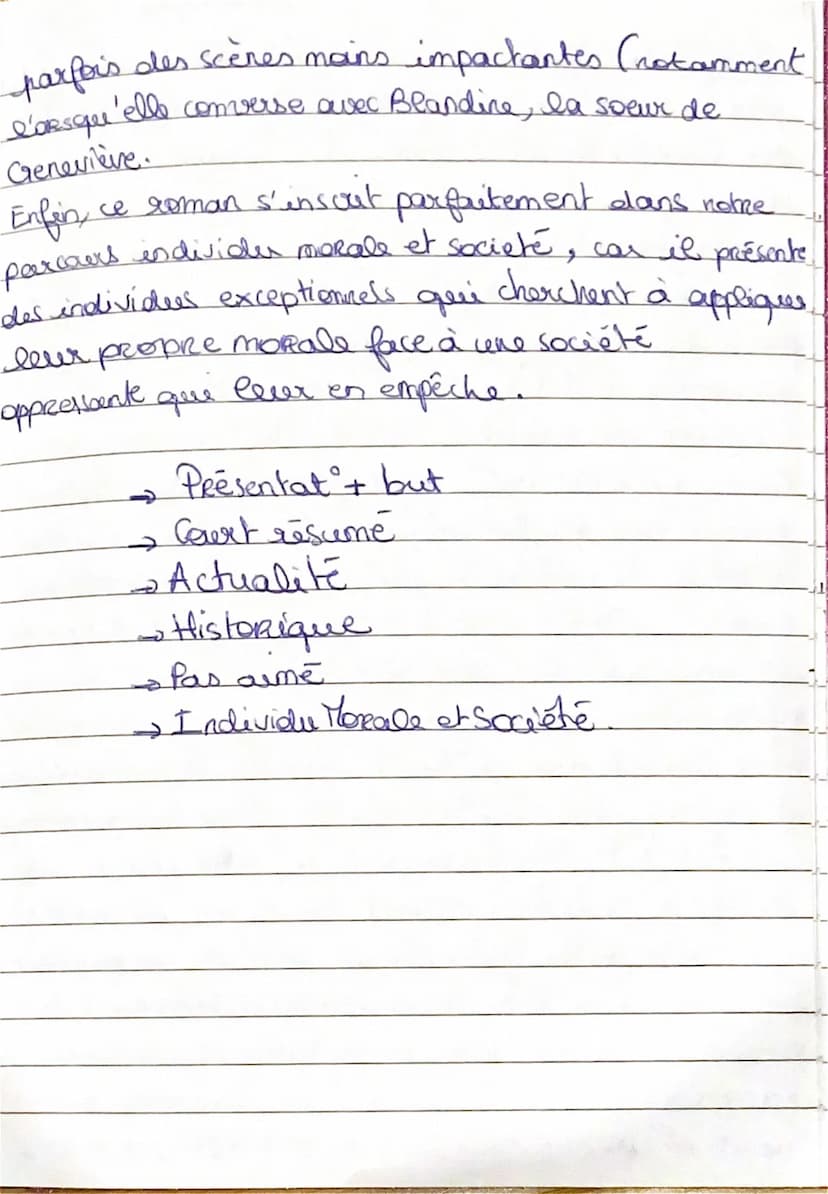 parfois des scènes moins impactantes (notamment
lorsqu'elle converse avec Blandine, la soeur de
Geneviève.
Enfin, ce roman s'inscrit parfaitement dans notre
parcours individu morale et societé, car il présente
des individus exceptionnels qui cherchent à appliquer
leur propre morale face à une société
oppressante qui leur en empêche.
→ Présentat° + but
→ Court résumé
→ Actualité
→ Historique
→ Pas aimé
→ Individu Morale et Société.